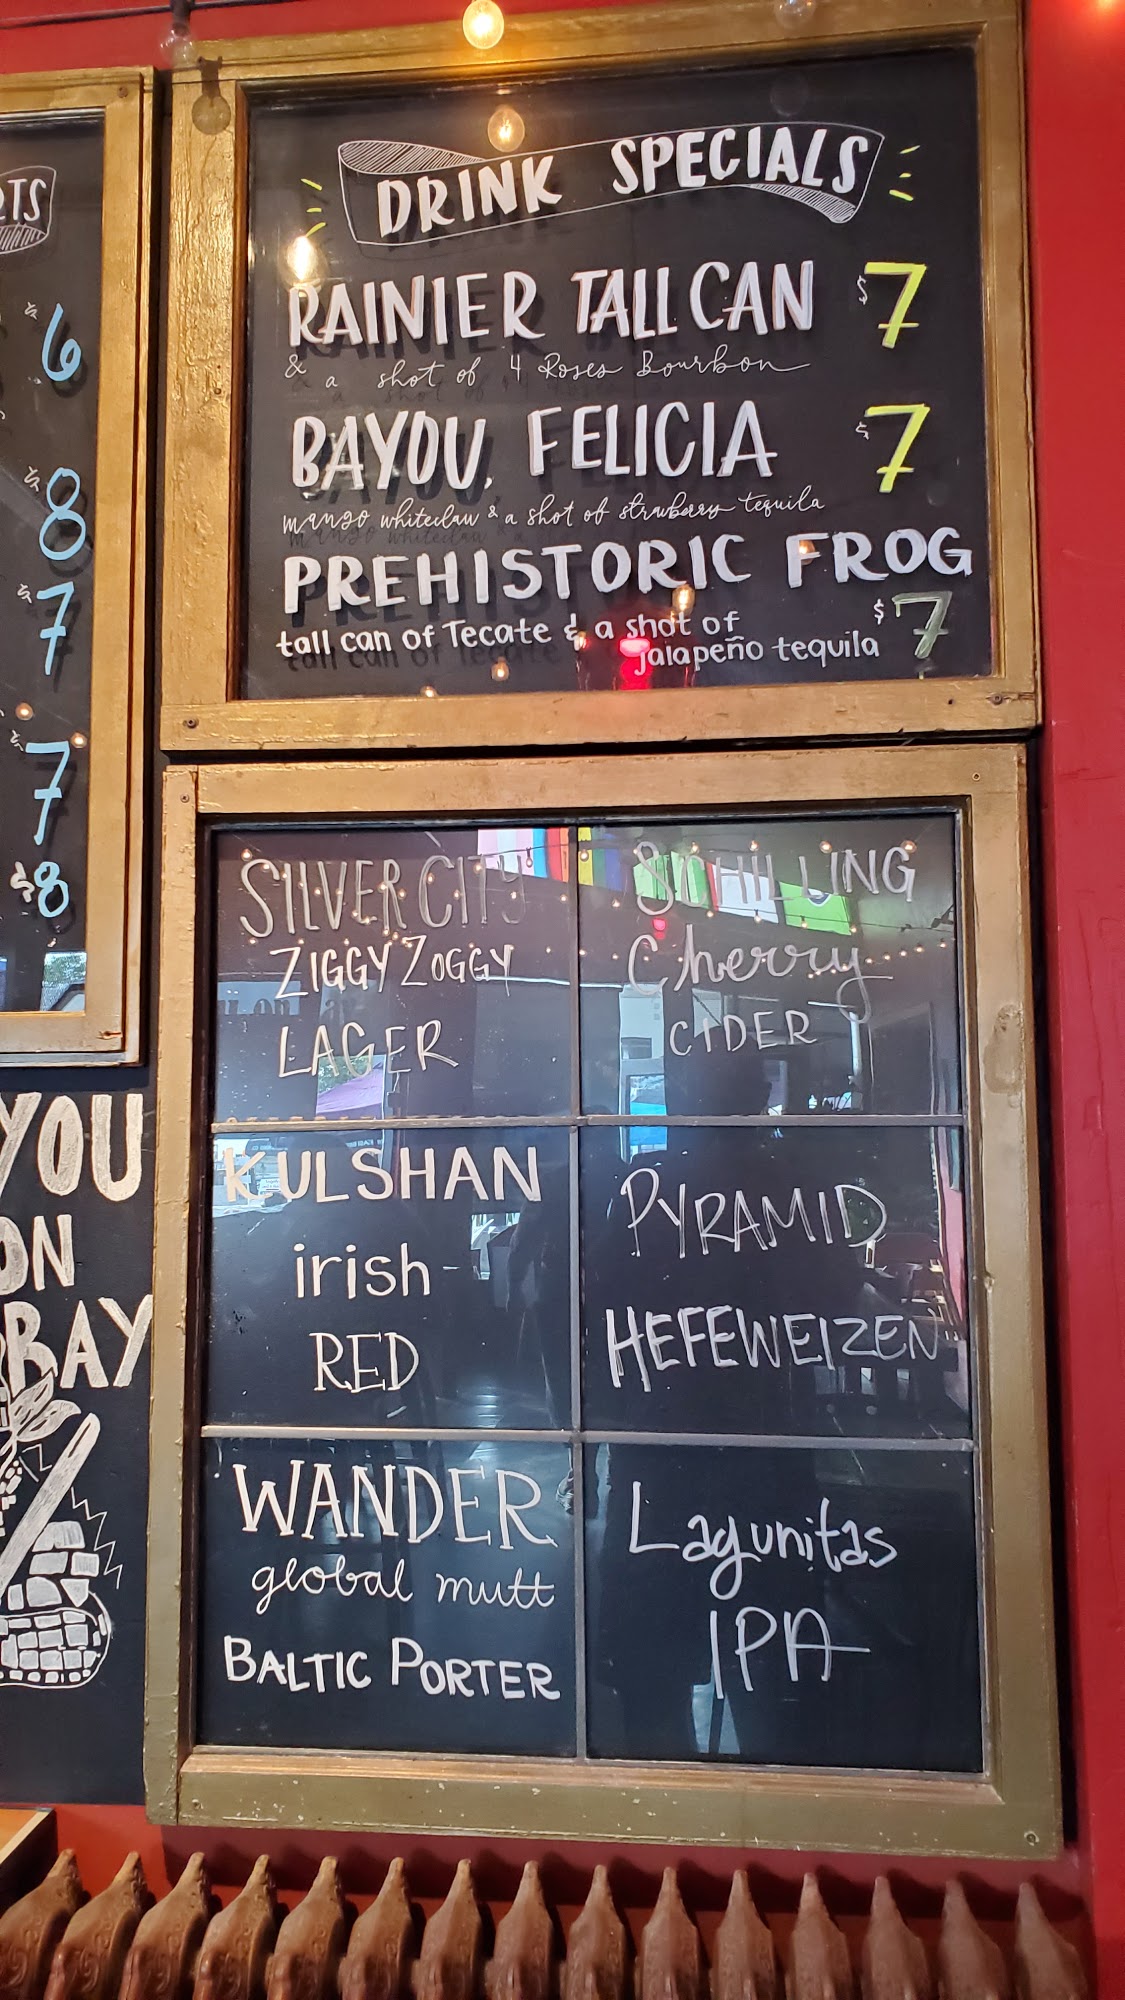 RTS
$6
$8
$7
$7
$8
YOU
ON
BAY
DRINK SPECIALS
RAINIER TALL CAN $7
& a shot of 4 Roses Bourbon
BAYOU, FELICIA $7
mango whiteclaw & a shot of strawberry tequila
PREHISTORIC FROG
tall can of Tecate & a shot of
jalapeño tequila $7
SILVER CITY
ZIGGY ZOGGY
LAGER
SCHILLING
Cherry
CIDER
KULSHAN
irish
RED
PYRAMID
HEFEWEIZEN
WANDER
global mutt
BALTIC PORTER
Lagunitas
IPA